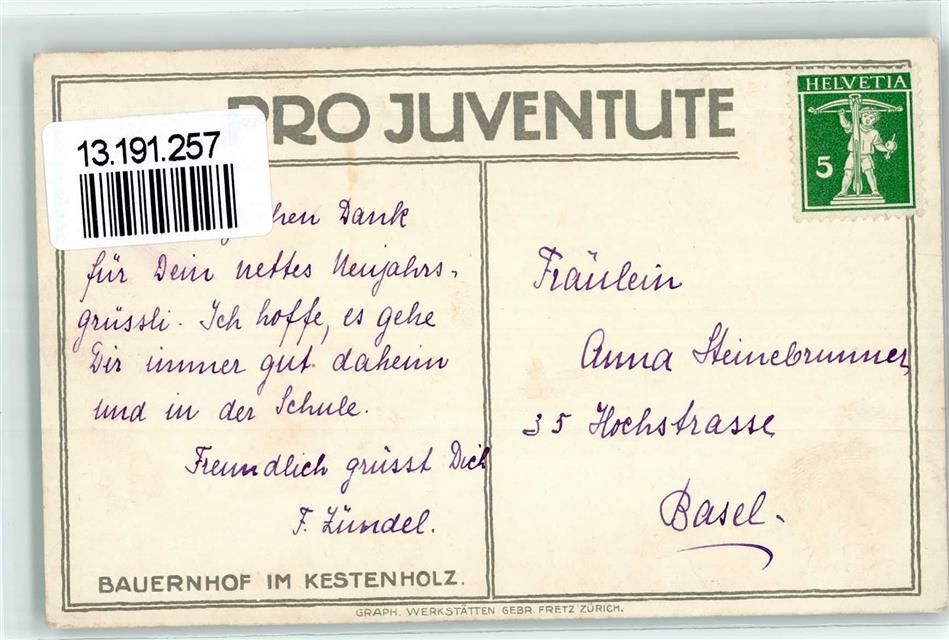 PRO JUVENTUTE
HELVETIA
5
13.191.257
Dank
für Dein nettes Neujahrs-
grüssli. Ich hoffe, es gehe
Dir immer gut daheim
und in der Schule.
Freundlich grüsst Dich
F. Zündel.
BAUERNHOF IM KESTENHOLZ.
Fräulein
Anna Steinebrunner,
35 Hochstrasse
Basel.
GRAPH. WERKSTÄTTEN GEBR. FRETZ ZÜRICH.